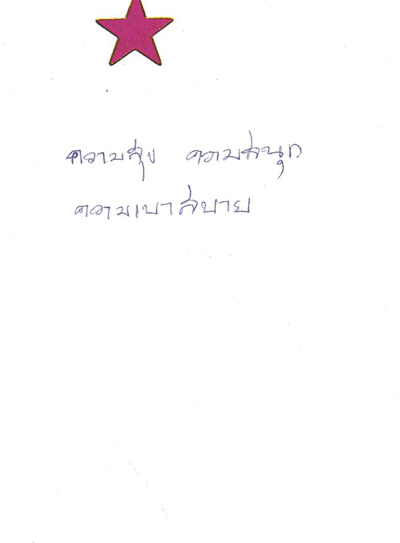 ความสุข ความสนุก
ความเบาสบาย